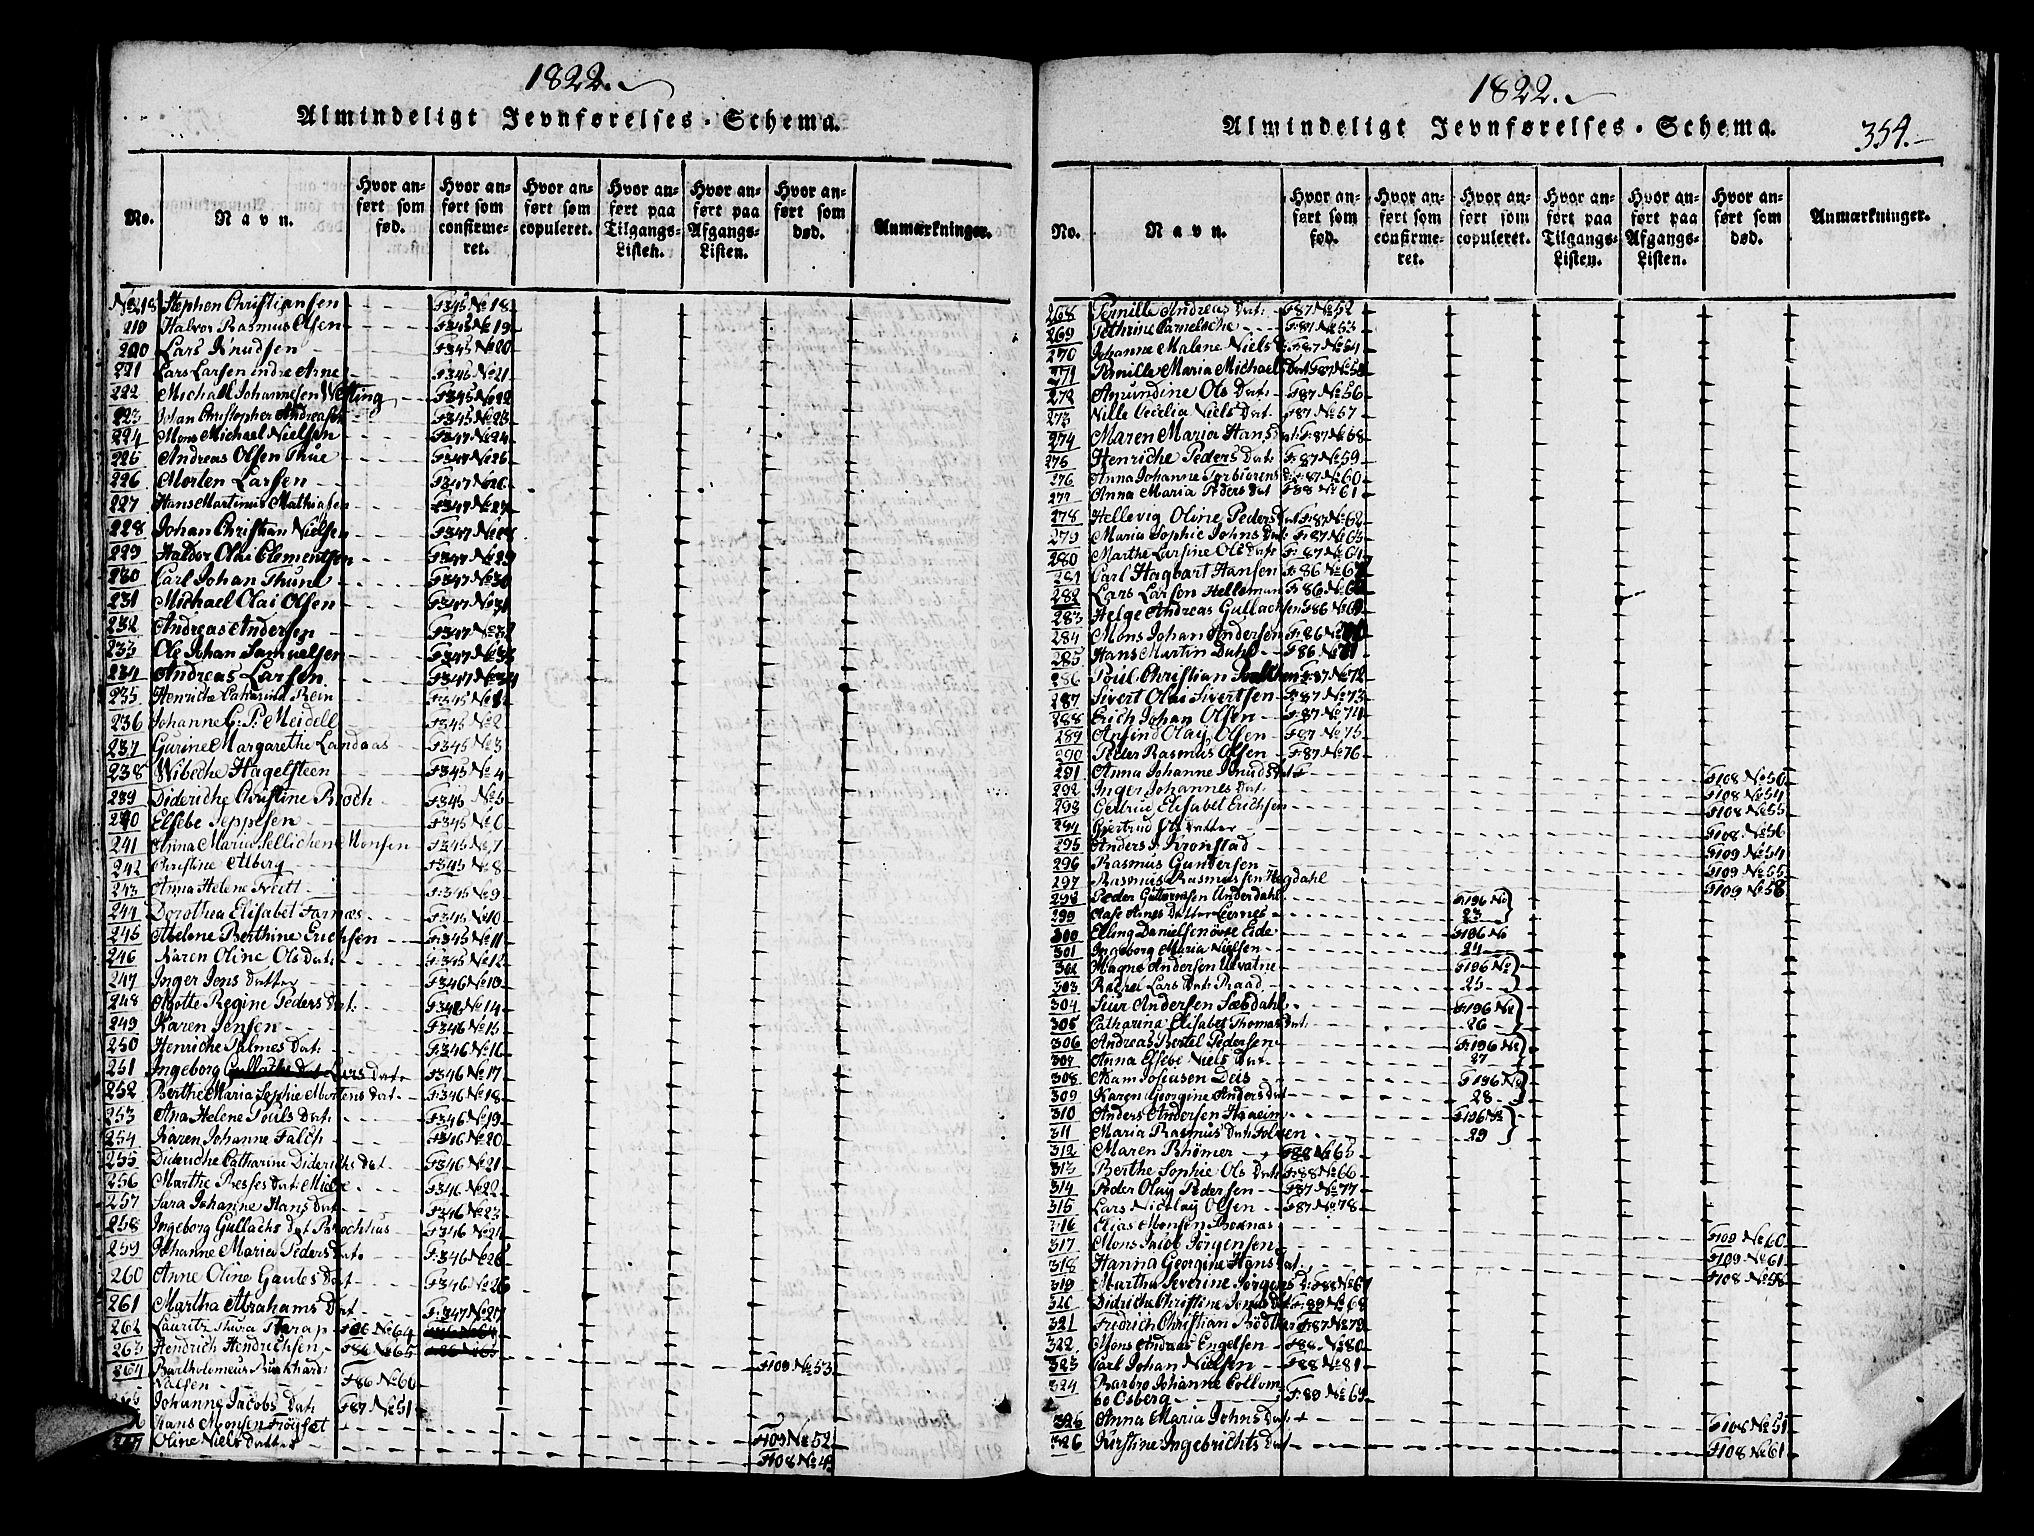 1822.
Almindeligt Jevnførelses-Schema.
No. Navn. Hvor anført som fød. Hvor anført som confirmeret. Hvor anført som copuleret. Hvor anført paa Tilgangs-Listen. Hvor anført paa Afgangs-Listen. Hvor anført som død. Anmærkninger.
No 218 Stephen Christiansen F345 No 18
219 Halvor Rasmus Olsen F345 No 19
220 Lars Knudsen F345 No 20
221 Lars Larsen indre Arne F346 No 21
222 Michael Johannesen F345 No 22
223 Johan Christopher Andreasen F345 No 23
224 Mons Michael Nielsen F347 No 24
225 Andreas Olsen Thue F347 No 25
226 Morten Larsen F347 No 26
227 Hans Martinus Mathiasen F347 No 27
228 Johan Christian Nielsen F347 No 28
229 Haldor Olai Clementsen F347 No 29
230 Carl Johan Thune F347 No 30
231 Michael Olai Olsen F347 No 31
232 Andreas Andersen F347 No 32
233 Ole Johan Samuelsen F347 No 33
234 Andreas Larsen F347 No 34
235 Henriche Catharina Rein F345 No
236 Johanne G. P. Meidell F345 No 2
237 Gurine Margarethe Landaas F345 No 3
238 Wibeche Hagelsteen F345 No 4
239 Dideriche Christine Broch F345 No 5
240 Elsebe Jeppesen F345 No 6
241 Anna Maria Monsen F345 No 7
242 Christine Alberg F345 No 8
243 Anna Helene F:345 No 9
244 Dorothea Elisabet Farnæs F345 No 10
245 Abelone Berthine Erichsen F:345 No 11
246 Karen Oline Ols Dat: F:345 No 12
247 Inger Jons Datter F346 No 10
248 Agotte Regine Peders Dat: F346 No 14
249 Karen Jensen F346 No 15
250 Henriche Palmes Dat: F:346 No 16
251 Ingeborg Lars Dat. F346 No 17
252 Berthe Maria Sophie Mortens Dat. F:346 No 18
253 Ana Helene Pouls Dat: F346 No 19
254 Karen Johanne Falch F346 No 20
255 Dideriche Catharine Diderichs Dat F346 No 21
256 Marthe Dat: Mielde F346 No 22
257 Sara Johanne Hans Dat F346 No 23
258 Ingeborg Gullachs Dat F346 No 24
259 Johanne Maria Peders Dat. F:346 No 25
260 Anne Oline Gautes Dat F346 No 26
261 Martha Abrahams Dat F:347 No 27
262 Lauritz F86 No 64
263 Hendrich Hendrichsen F86 No 65
264 Bartholomeus F109 No 53
Nalsen F86 No 60
Johanne Jacobs Dat: F87 No 51
Hans Monsen F109 No 52
Oline Niels Datter F108 No

1822.
Almindeligt Jevnførelses-Schema. 354.
No. Navn. Hvor anført som fød. Hvor anført som confirmeret. Hvor anført som copuleret. Hvor anført paa Tilgangs-Listen. Hvor anført paa Afgangs-Listen. Hvor anført som død. Anmærkninger.
268 Pernille Andreas Dat: F87 No 52
269 Pethrine F:87 No 53
270 Johanne Malene Niels D: F:87 No 54
271 Pernille Maria Michaels Dat F87 No 55
272 Amundine Ols Dat: F87 No 56
273 Nille Cecelia Niels Dat: F87 No 57
274 Maren Maria Hans Dat: F:87 No 58
275 Henriche Peders Dat: F:87 No 59
276 Anna Johanne Torbiørens D: F87 No 60
277 Anna Maria Peders Dat F88 No 61
278 Hellevig Oline Peders Dat F87 No 62
279 Maria Sophie Johns Dat: F87 No 63
280 Marthe Larsine Ols Dat: F:87 No 64
281 Carl Hagbart Hansen F:86 No 67
282 Lars Larsen Helleman F86 No
283 Helge Andreas Gullachsen F86 No 69
284 Mons Johan Andersen F:86 No 70
285 Hans Martin Dahl F86 No 71
286 Poul Christian F87 No 72
287 Sivert Olai Sivertsen F:87 No 73
288 Erich Johan Olsen F:87 No 74
289 Anfind Olay Olsen F87 No 75
290 Peder Rasmus Olsen F:87 No 76
291 Anna Johanne Knuds Dat F108 No 50
292 Inger Johannes Dat: F108 No 54
293 Gertrue Elisabet Erichsen F108 No 55
294 Giertrud Ols Datter F108 No 56
295 Anders J. Kronstad F109 No 54
296 Rasmus Gundersen F109 No 55
297 Rasmus Rasmussen Hegdahl F109 No 58
298 Peder Guttormsen Underdahl F196 No
299 Olafe Arnes Datter Lernes 23
300 Elling Danielsen øvre Eide F196 No
301 Ingeborg Maria Nielsen 24
302 Magne Andersen Ulvatne F196 No
303 Rachel Lars Dat: Raad 25
304 Siur Andersen Sæbdahl F196 No
305 Catharina Elisabet Thomas Dat: 26
306 Andreas Bertel Pedersen F:196 No
307 Anna Elsebe Niels Dat. 27
308 Adam Josiasen Deis F196 No
309 Karen Georgine Anders Dat 28
310 Anders Andersen Haaeim F196 No
311 Maria Rasmus Dat: 29
312 Maren Rhømer F88 No 65
313 Berthe Sophie Ols Dat: F:88 No 66
314 Peder Olay Pedersen F87 No 77
315 Lars Nicolay Olsen F87 No 78
316 Elias Monsen F109 No 60
317 Mons Jacob Jørgensen F109 No 61
318 Hanna Georgine Hans Dat. F108 No 58
319 Martha Severine Jørgens D: F88 No 67
320 Didriche Christine F:89 No 68
321 Fredrich Christian Bødtker F:87 No 79
322 Mons Andreas Engelsen F88 No 80
323 Carl Johan Nielsen F88 No 81
324 Barbro Johanne Collumbe Osberg F:89 No 69
325 Anna Maria Johns Dat: F108 No 51
326 Kirstine Ingebrichts Dat F108 No 61